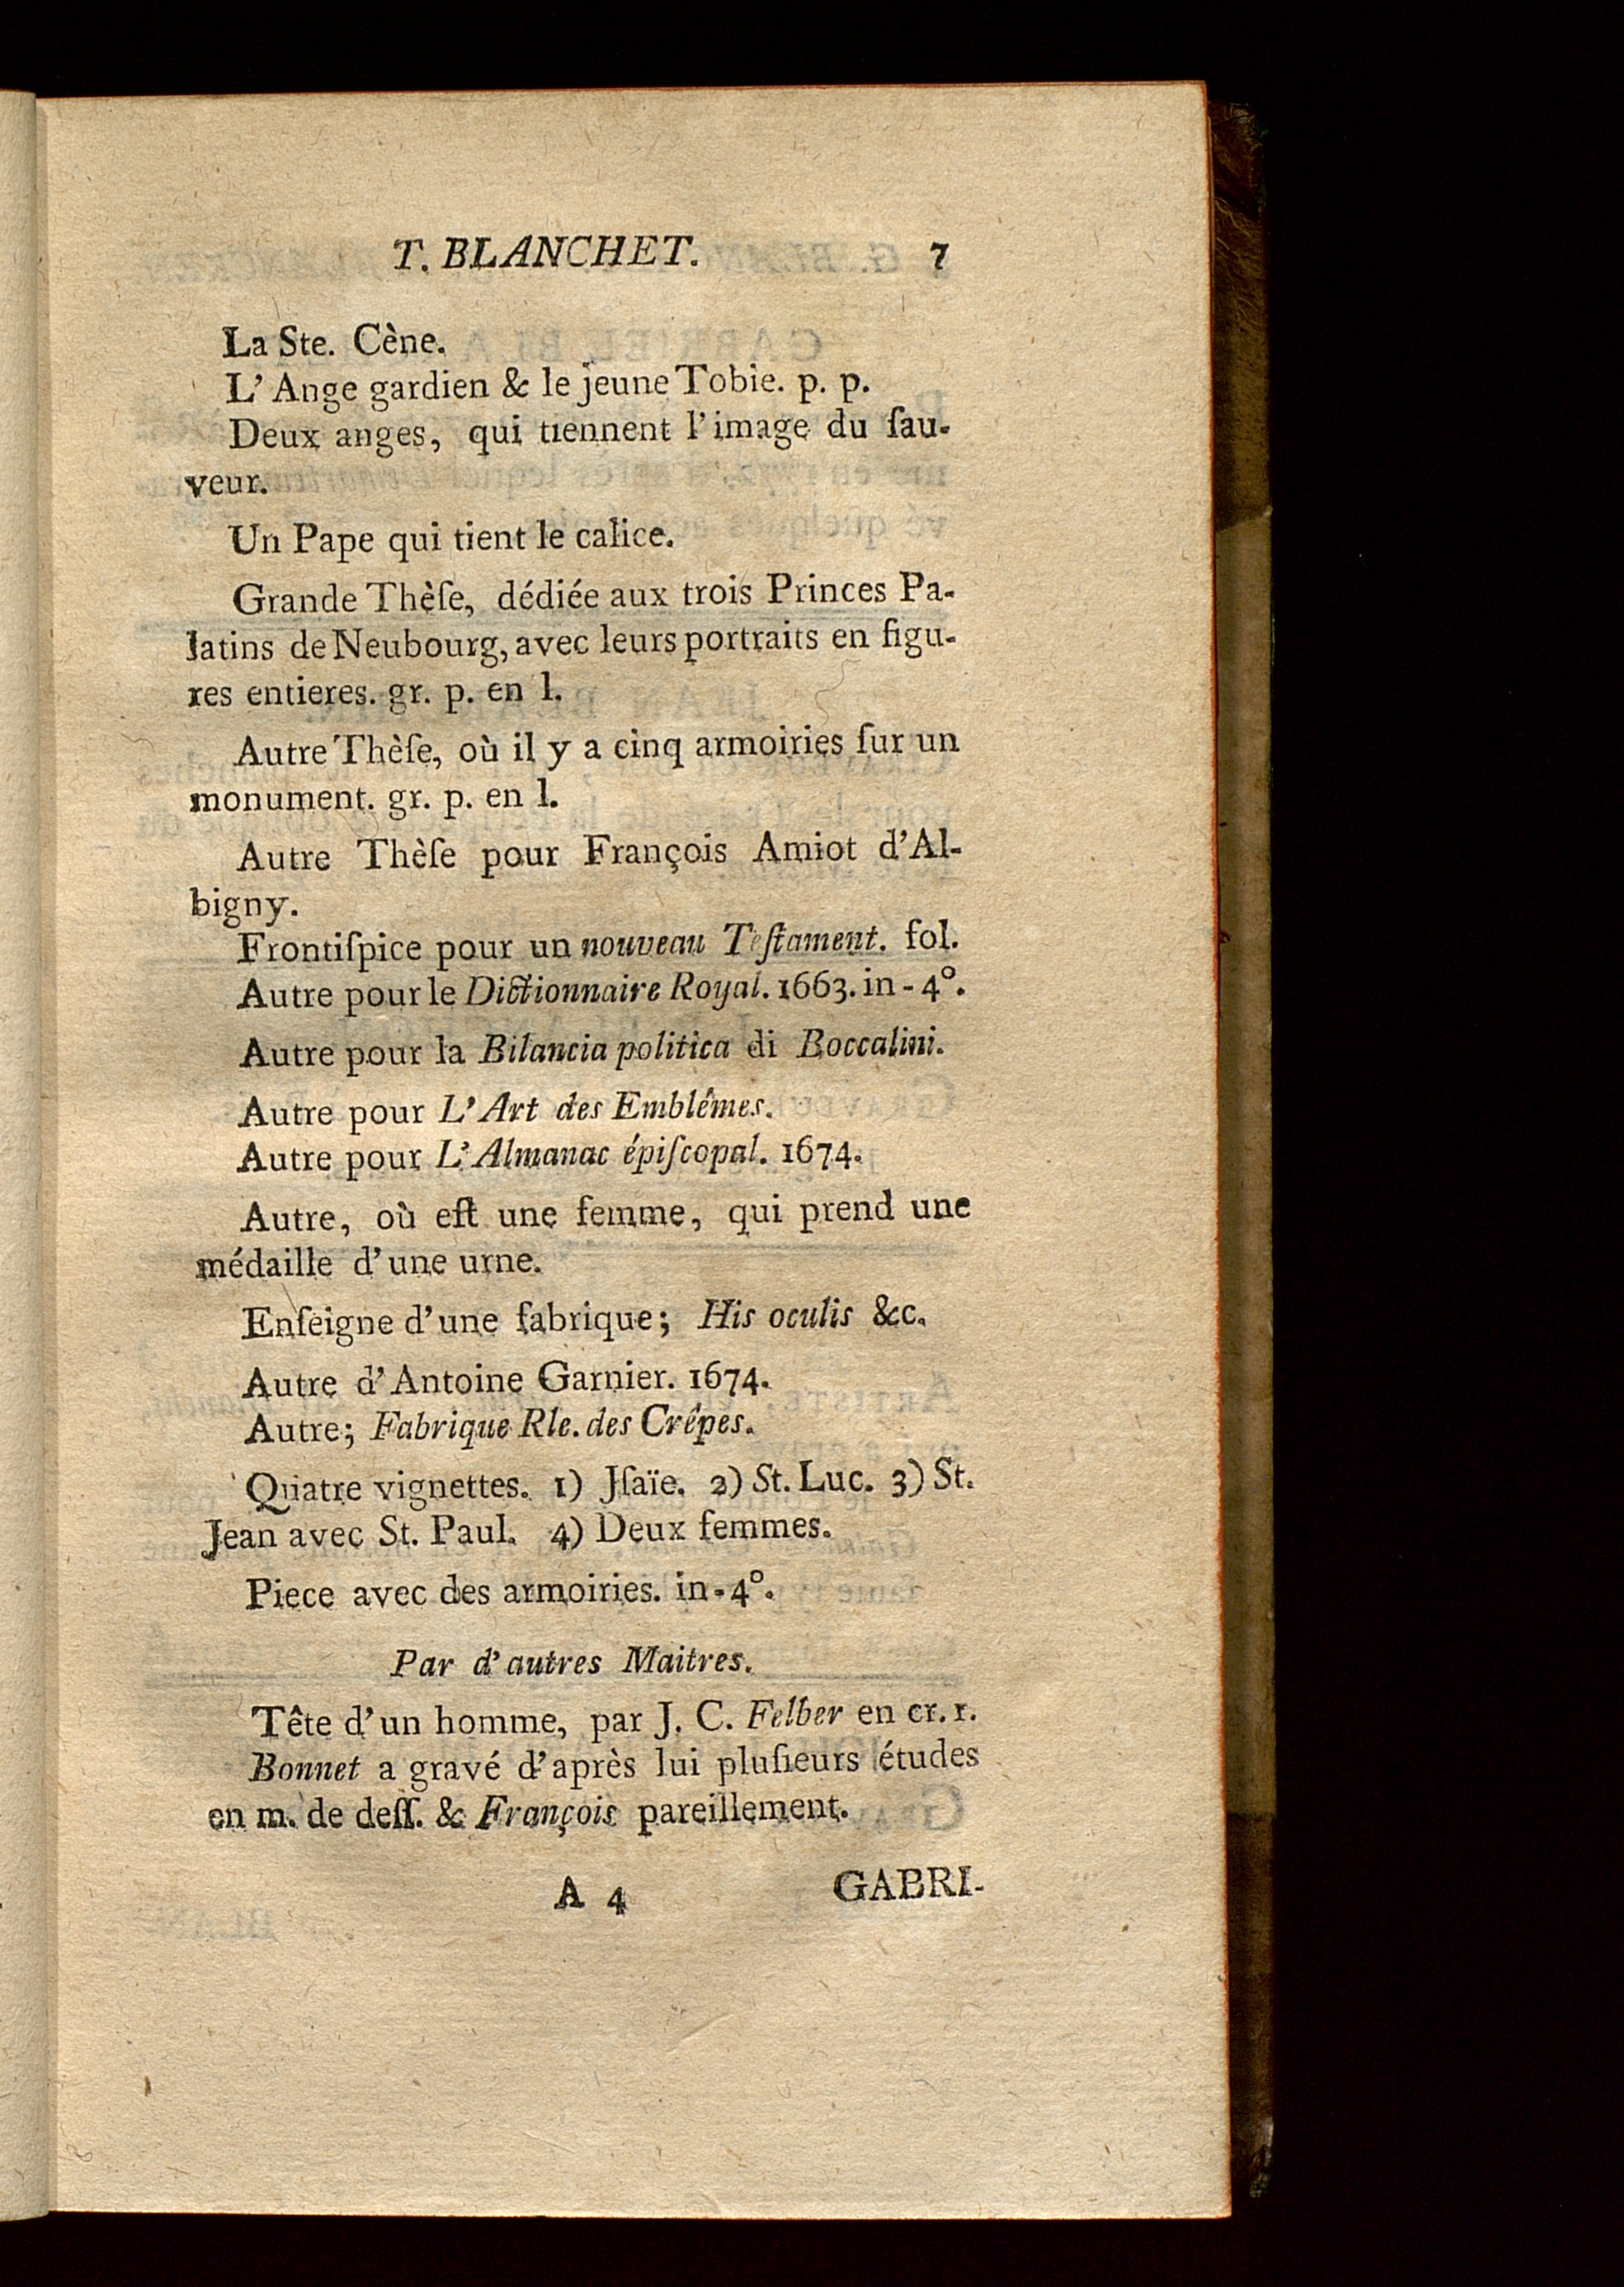 T. BLANCHET. 7
La Ste. Cène.
L' Ange gardien & le jeune Tobie. p. p.
Deux anges, qui tiennent l'image du ſau-
veur.
Un Pape qui tient le calice.
Grande Thèſe, dédiée aux trois Princes Pa-
latins de Neubourg, avec leurs portraits en figu-
res entieres. gr. p. en l.
Autre Thèſe, où il y a cinq armoiries ſur un
monument. gr. p. en l.
Autre Thèſe pour François Amiot d'Al-
bigny.
Frontiſpice pour un nouveau Teſtament. fol.
Autre pour le Dictionnaire Royal. 1663. in - 4°.
Autre pour la Bilancia politica di Boccalini.
Autre pour L'Art des Emblêmes.
Autre pour L'Almanac épiſcopal. 1674.
Autre, où eſt une femme, qui prend une
médaille d'une urne.
Enſeigne d'une fabrique; His oculis &c.
Autre d'Antoine Garnier. 1674.
Autre; Fabrique Rle. des Crêpes.
Quatre vignettes. 1) Jſaïe. 2) St. Luc. 3) St.
Jean avec St. Paul. 4) Deux femmes.
Piece avec des armoiries. in-4°.
Par d'autres Maitres.
Tête d'un homme, par J. C. Felber en cr. r.
Bonnet a gravé d'après lui pluſieurs études
en m. de deſſ. & François pareillement.
A 4 GABRI-